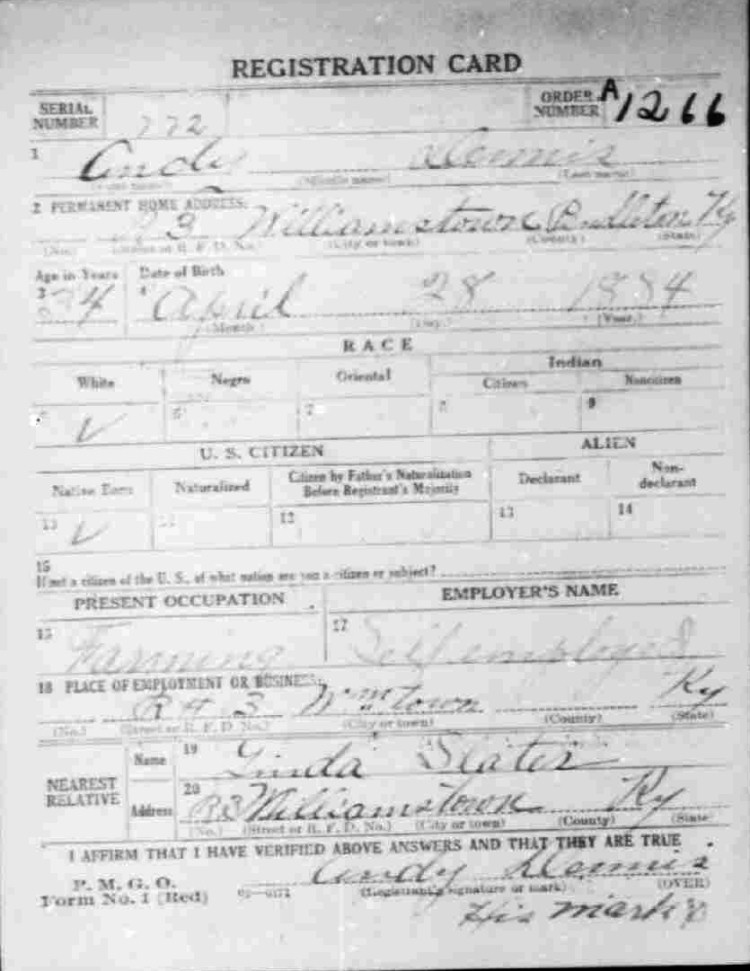 REGISTRATION CARD
SERIAL NUMBER 772 ORDER NUMBER A1266
1 Andy Dennis
(First name) (Middle name) (Last name)
2 PERMANENT HOME ADDRESS:
R 3 Williamstown Pendleton Ky
(No.) (Street or R. F. D. No.) (City or town) (County) (State)
Age in Years Date of Birth
3 34 4 April 28 1884
(Month.) (Day.) (Year.)
RACE
White Negro Oriental Indian
Citizen Noncitizen
5 ✓ 6 7 8 9
U. S. CITIZEN ALIEN
Native Born Naturalized Citizen by Father's Naturalization Before Registrant's Majority Declarant Non-declarant
10 ✓ 11 12 13 14
15
If not a citizen of the U. S., of what nation are you a citizen or subject?
PRESENT OCCUPATION EMPLOYER'S NAME
16 Farming 17 Self employed
18 PLACE OF EMPLOYMENT OR BUSINESS:
R # 3 Wmtown Ky
(No.) (Street or R. F. D. No.) (City or town) (County) (State)
NEAREST RELATIVE
Name 19 Linda Slater
Address 20 R3 Williamstown Ky
(No.) (Street or R. F. D. No.) (City or town) (County) (State)
I AFFIRM THAT I HAVE VERIFIED ABOVE ANSWERS AND THAT THEY ARE TRUE
P. M. G. O.
Form No. 1 (Red) Andy Dennis
(Registrant's signature or mark) (OVER)
His mark